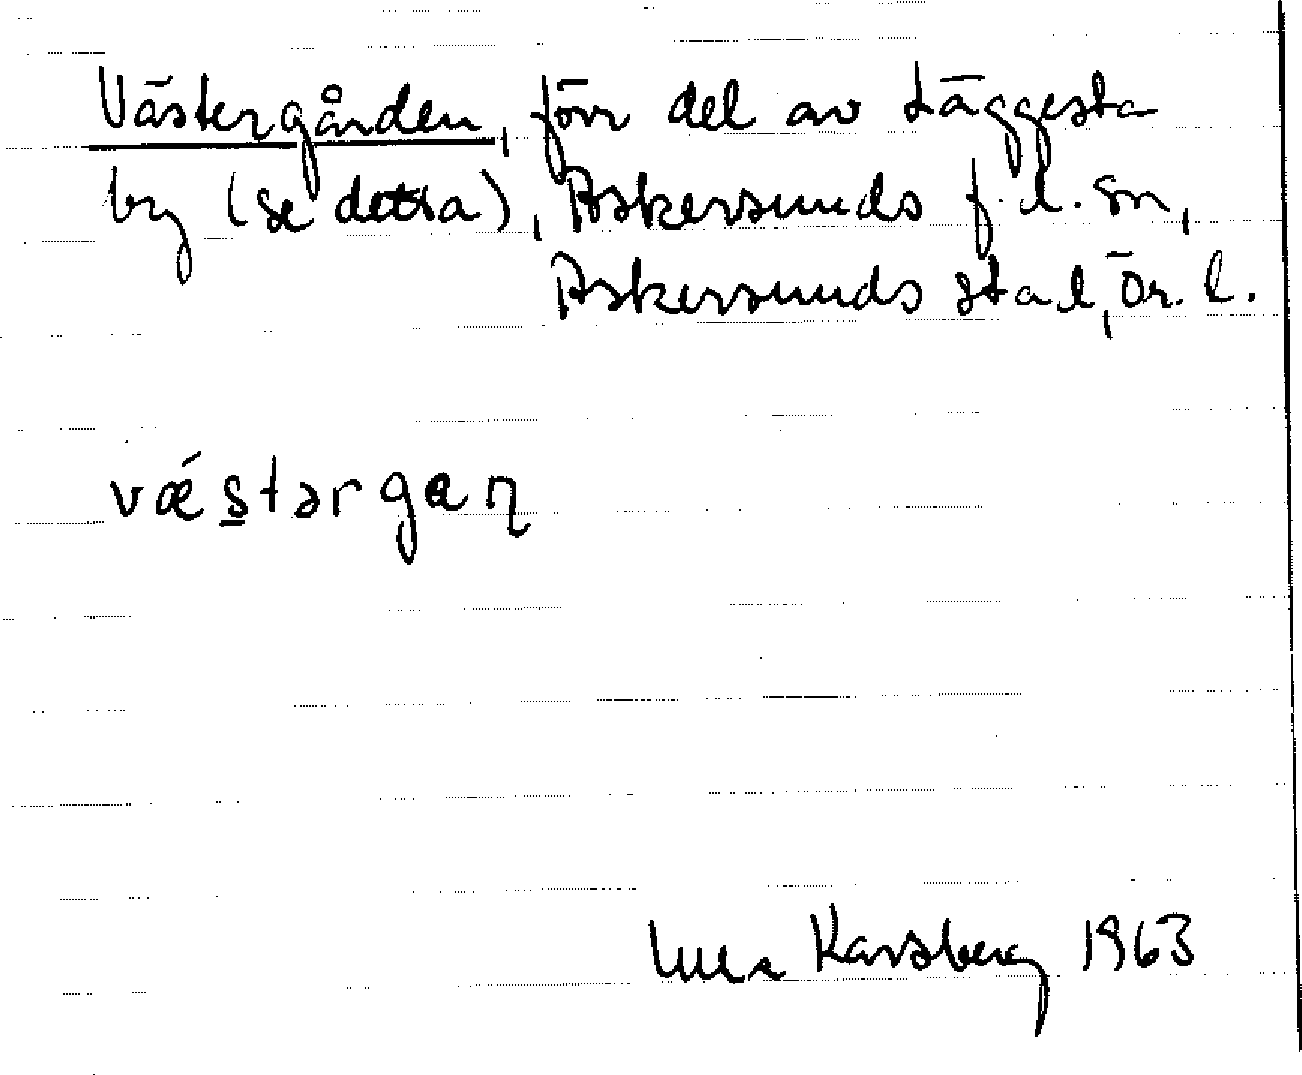 Västergården, förr del av Läggesta
by (se detta), Askersunds f.d. sn,
Askersunds stad, Ör. l.
væ´stərgaꞃ
Karsberg 1963